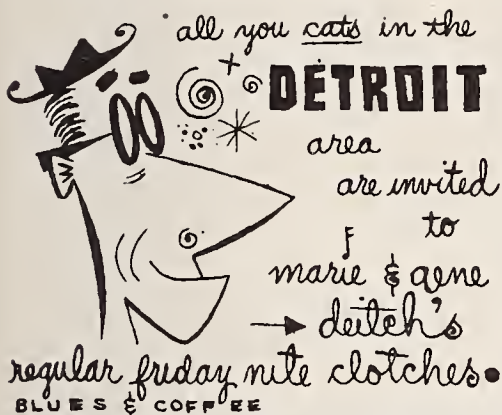 all you cats in the
DETROIT
area
are invited
to
marie & gene
deitch's
regular friday nite clotches.
BLUES & COFFEE